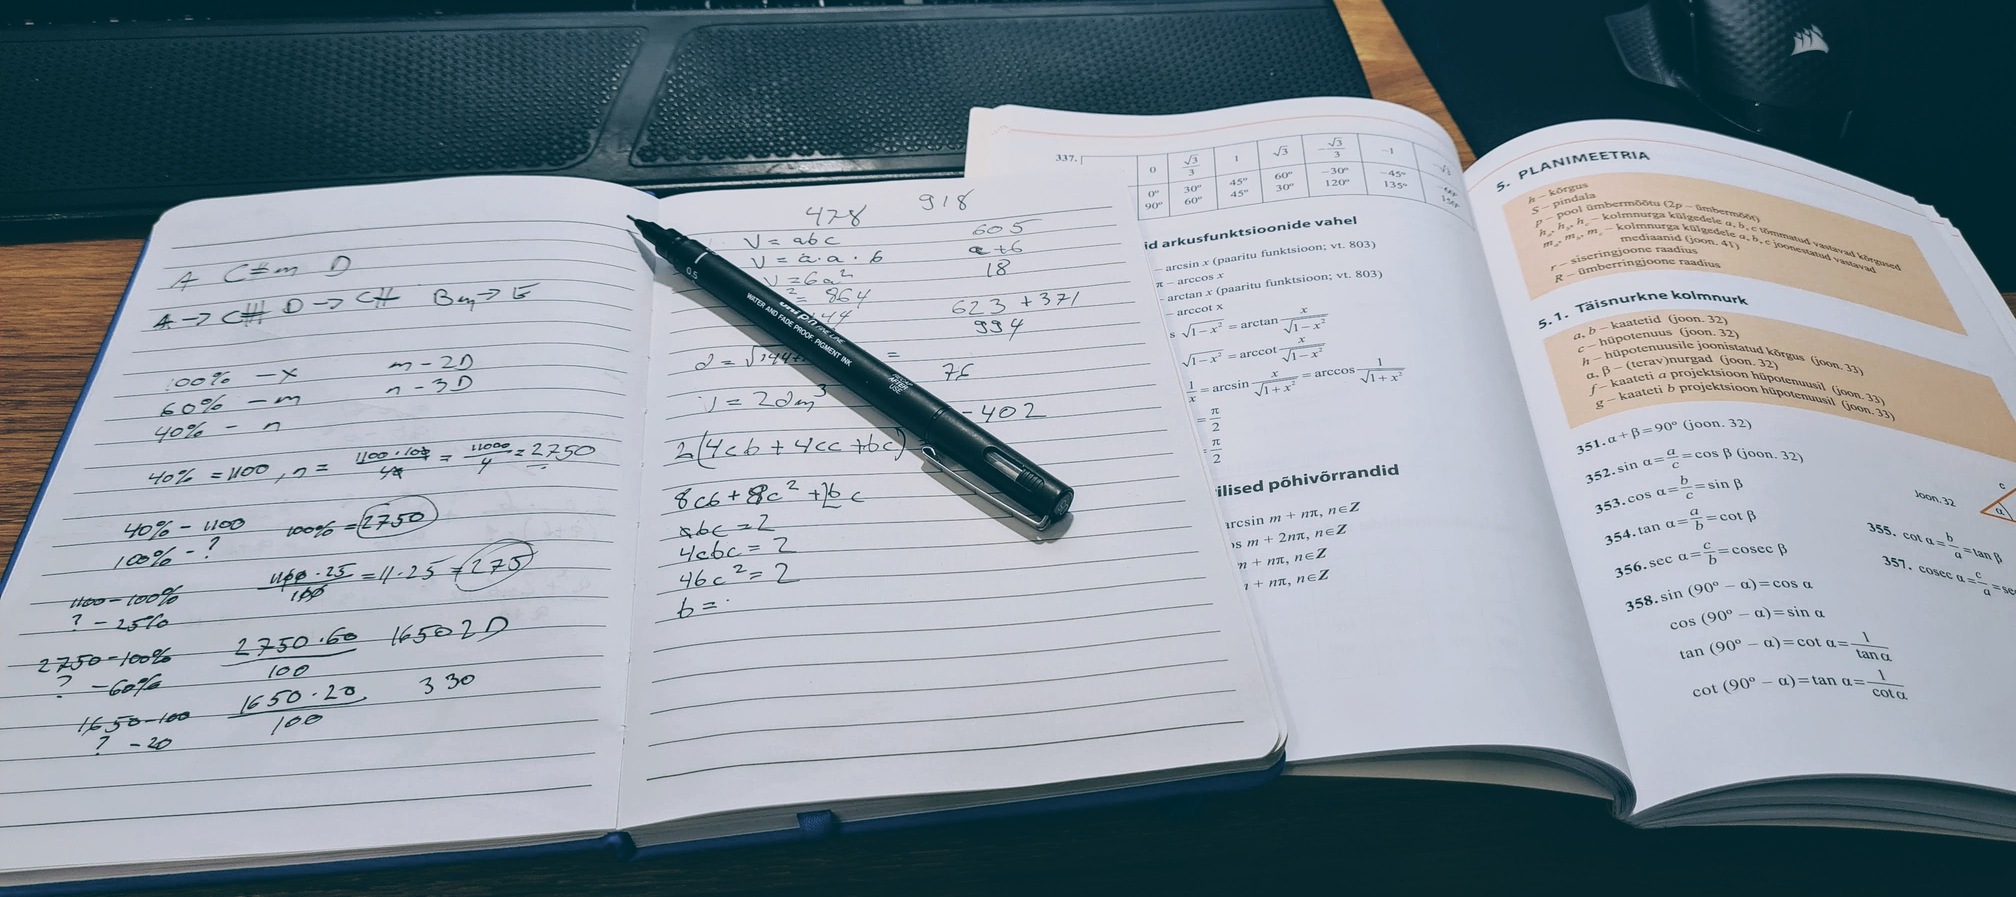 A C#m D
A → C# D → C# Bm → E
100% - x m - 2D
60% - m n - 3D
40% - n
40% = 1100, n = 1100·100/40 = 11000/4 = 2750
40% - 1100 100% = 2750
100% - ?
1100 - 100% 1100·25/100 = 11·25 = 275
? - 25%
2750 - 100% 2750·60/100 1650 2D
? - 60%
1650 - 100 1650·20/100 330
? - 20
478 918
V = abc 605
V = a·a·6 a+6
V = 6a² 18
² = 864 623 + 371
144 994
d = √144
=
76
V = 2dm³
-402
2(4cb + 4cc + bc)
8cb + 8c² + 2bc
abc = 2
4cbc = 2
4bc² = 2
b =
0.5
uni pin FINE LINE
WATER AND FADE PROOF, PIGMENT INK
RECAP AFTER USE
337.
0 √3/3 1 √3 -√3/3 -1 -√3
0° 30° 45° 60° -30° -45° -60°
90° 60° 45° 30° 120° 135° 150°
id arkusfunktsioonide vahel
- arcsin x (paaritu funktsioon; vt. 803)
π - arccos x
- arctan x (paaritu funktsioon; vt. 803)
- arccot x
s √1-x² = arctan x/√1-x²
√1-x² = arccot x/√1-x²
1/x = arcsin x/√1+x² = arccos 1/√1+x²
= π/2
π/2
ilised põhivõrrandid
arcsin m + nπ, n∈Z
os m + 2nπ, n∈Z
m + nπ, n∈Z
n + nπ, n∈Z
5. PLANIMEETRIA
h – kõrgus
S – pindala
p – pool ümbermõõtu (2p – ümbermõõt)
hₐ, h_b, h_c – kolmnurga külgedele a, b, c tõmmatud vastavad kõrgused
mₐ, m_b, m_c – kolmnurga külgedele a, b, c joonestatud vastavad
mediaanid (joon. 41)
r – siseringjoone raadius
R – ümberringjoone raadius
5.1. Täisnurkne kolmnurk
a, b – kaatetid (joon. 32)
c – hüpotenuus (joon. 32)
h – hüpotenuusile joonistatud kõrgus (joon. 33)
α, β – (terav)nurgad (joon. 32)
f – kaateti a projektsioon hüpotenuusil (joon. 33)
g – kaateti b projektsioon hüpotenuusil (joon. 33)
351. α + β = 90° (joon. 32)
352. sin α = a/c = cos β (joon. 32)
353. cos α = b/c = sin β
354. tan α = a/b = cot β
355. cot α = b/a = tan β
356. sec α = c/b = cosec β
357. cosec α = c/a = sec
358. sin (90° – α) = cos α
cos (90° – α) = sin α
tan (90° – α) = cot α = 1/tan α
cot (90° – α) = tan α = 1/cot α
Joon. 32
c
α